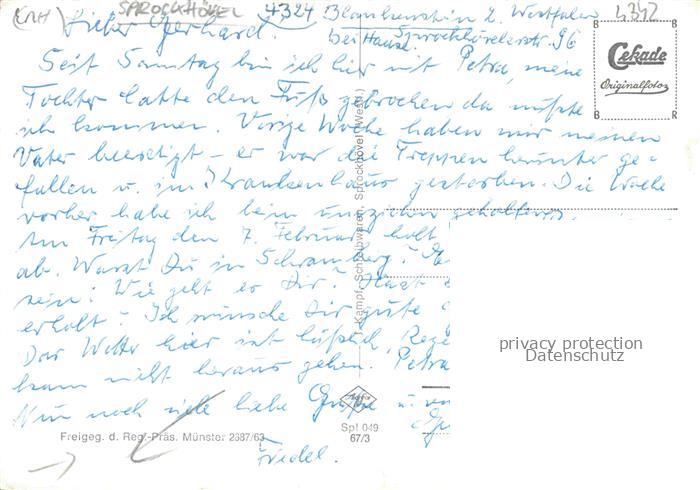 (NH) SPROCKHÖVEL 4324 Blankenstein 2. Westfalen 4342
Lieber Gerhard. bei Hause. Sprockhövelerstr. 96
Seit Samstag bin ich hier mit Petra, meine
Tochter hatte den Fuß gebrochen da mußte
ich kommen. Vorige Woche haben wir meinen
Vater beerdigt - er war die Treppen herunter ge-
fallen u. im Krankenhaus gestorben. Die Woche
vorher habe ich beim umziehen geholfen.
Am Freitag den 7. Februar holt
ab. Warst Du in Schramberg?
sein! Wie geht es Dir? Hast
erholt? Ich wünsche Dir gute
Das Wetter hier ist häßlich, Rege
kann nicht heraus gehen. Petra
Nun noch viele liebe Grüße u. von
Friedel.
Cekade
Originalfotos
B
R
B
R
J. Kampf, Schreibwaren, Sprockhövel (Westf.)
privacy protection
Datenschutz
Freigeg. d. Reg.-Präs. Münster 2387/63
Spf 049
67/3